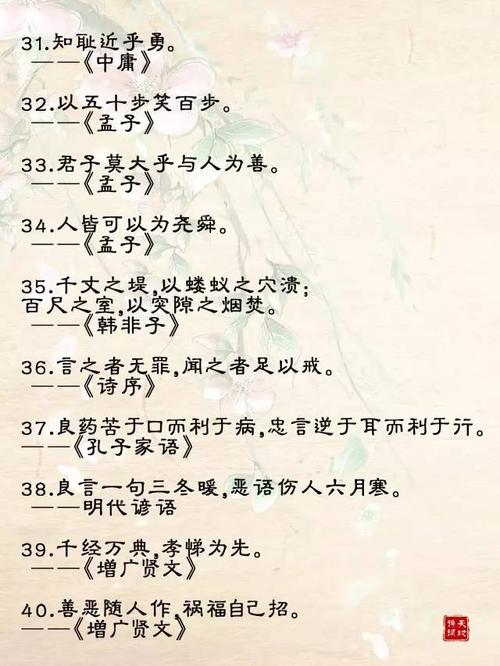 31.知耻近乎勇。
——《中庸》
32.以五十步笑百步。
——《孟子》
33.君子莫大乎与人为善。
——《孟子》
34.人皆可以为尧舜。
——《孟子》
35.千丈之堤,以蝼蚁之穴溃;
百尺之室,以突隙之烟焚。
——《韩非子》
36.言之者无罪,闻之者足以戒。
——《诗序》
37.良药苦于口而利于病,忠言逆于耳而利于行。
——《孔子家语》
38.良言一句三冬暖,恶语伤人六月寒。
——明代谚语
39.千经万典,孝悌为先。
——《增广贤文》
40.善恶随人作,祸福自己招。
——《增广贤文》